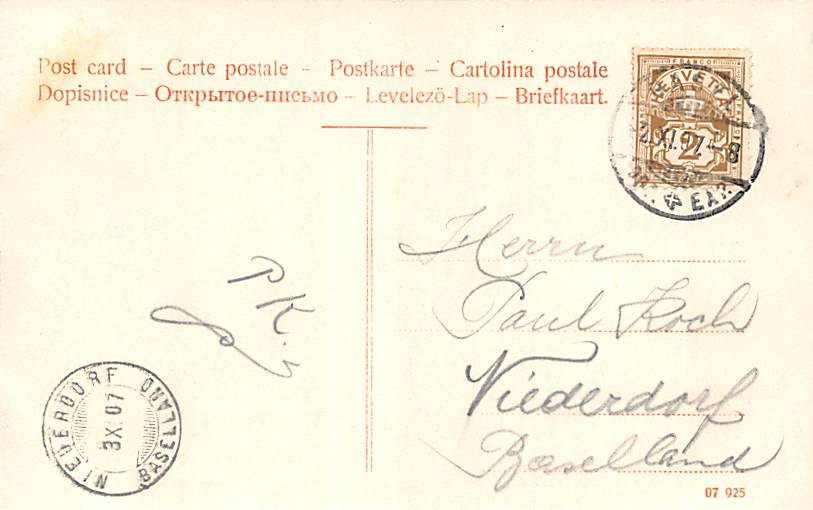 Post card – Carte postale – Postkarte – Cartolina postale
Dopisnice – Открытое-письмо – Levelező-Lap – Briefkaart.
FRANCO
HELVETIA
2
XI.07–8
Herrn
Paul Koch
Niederdorf
Baselland
P K.
NIEDERDORF BASELLAND
3 XI 07
07 925